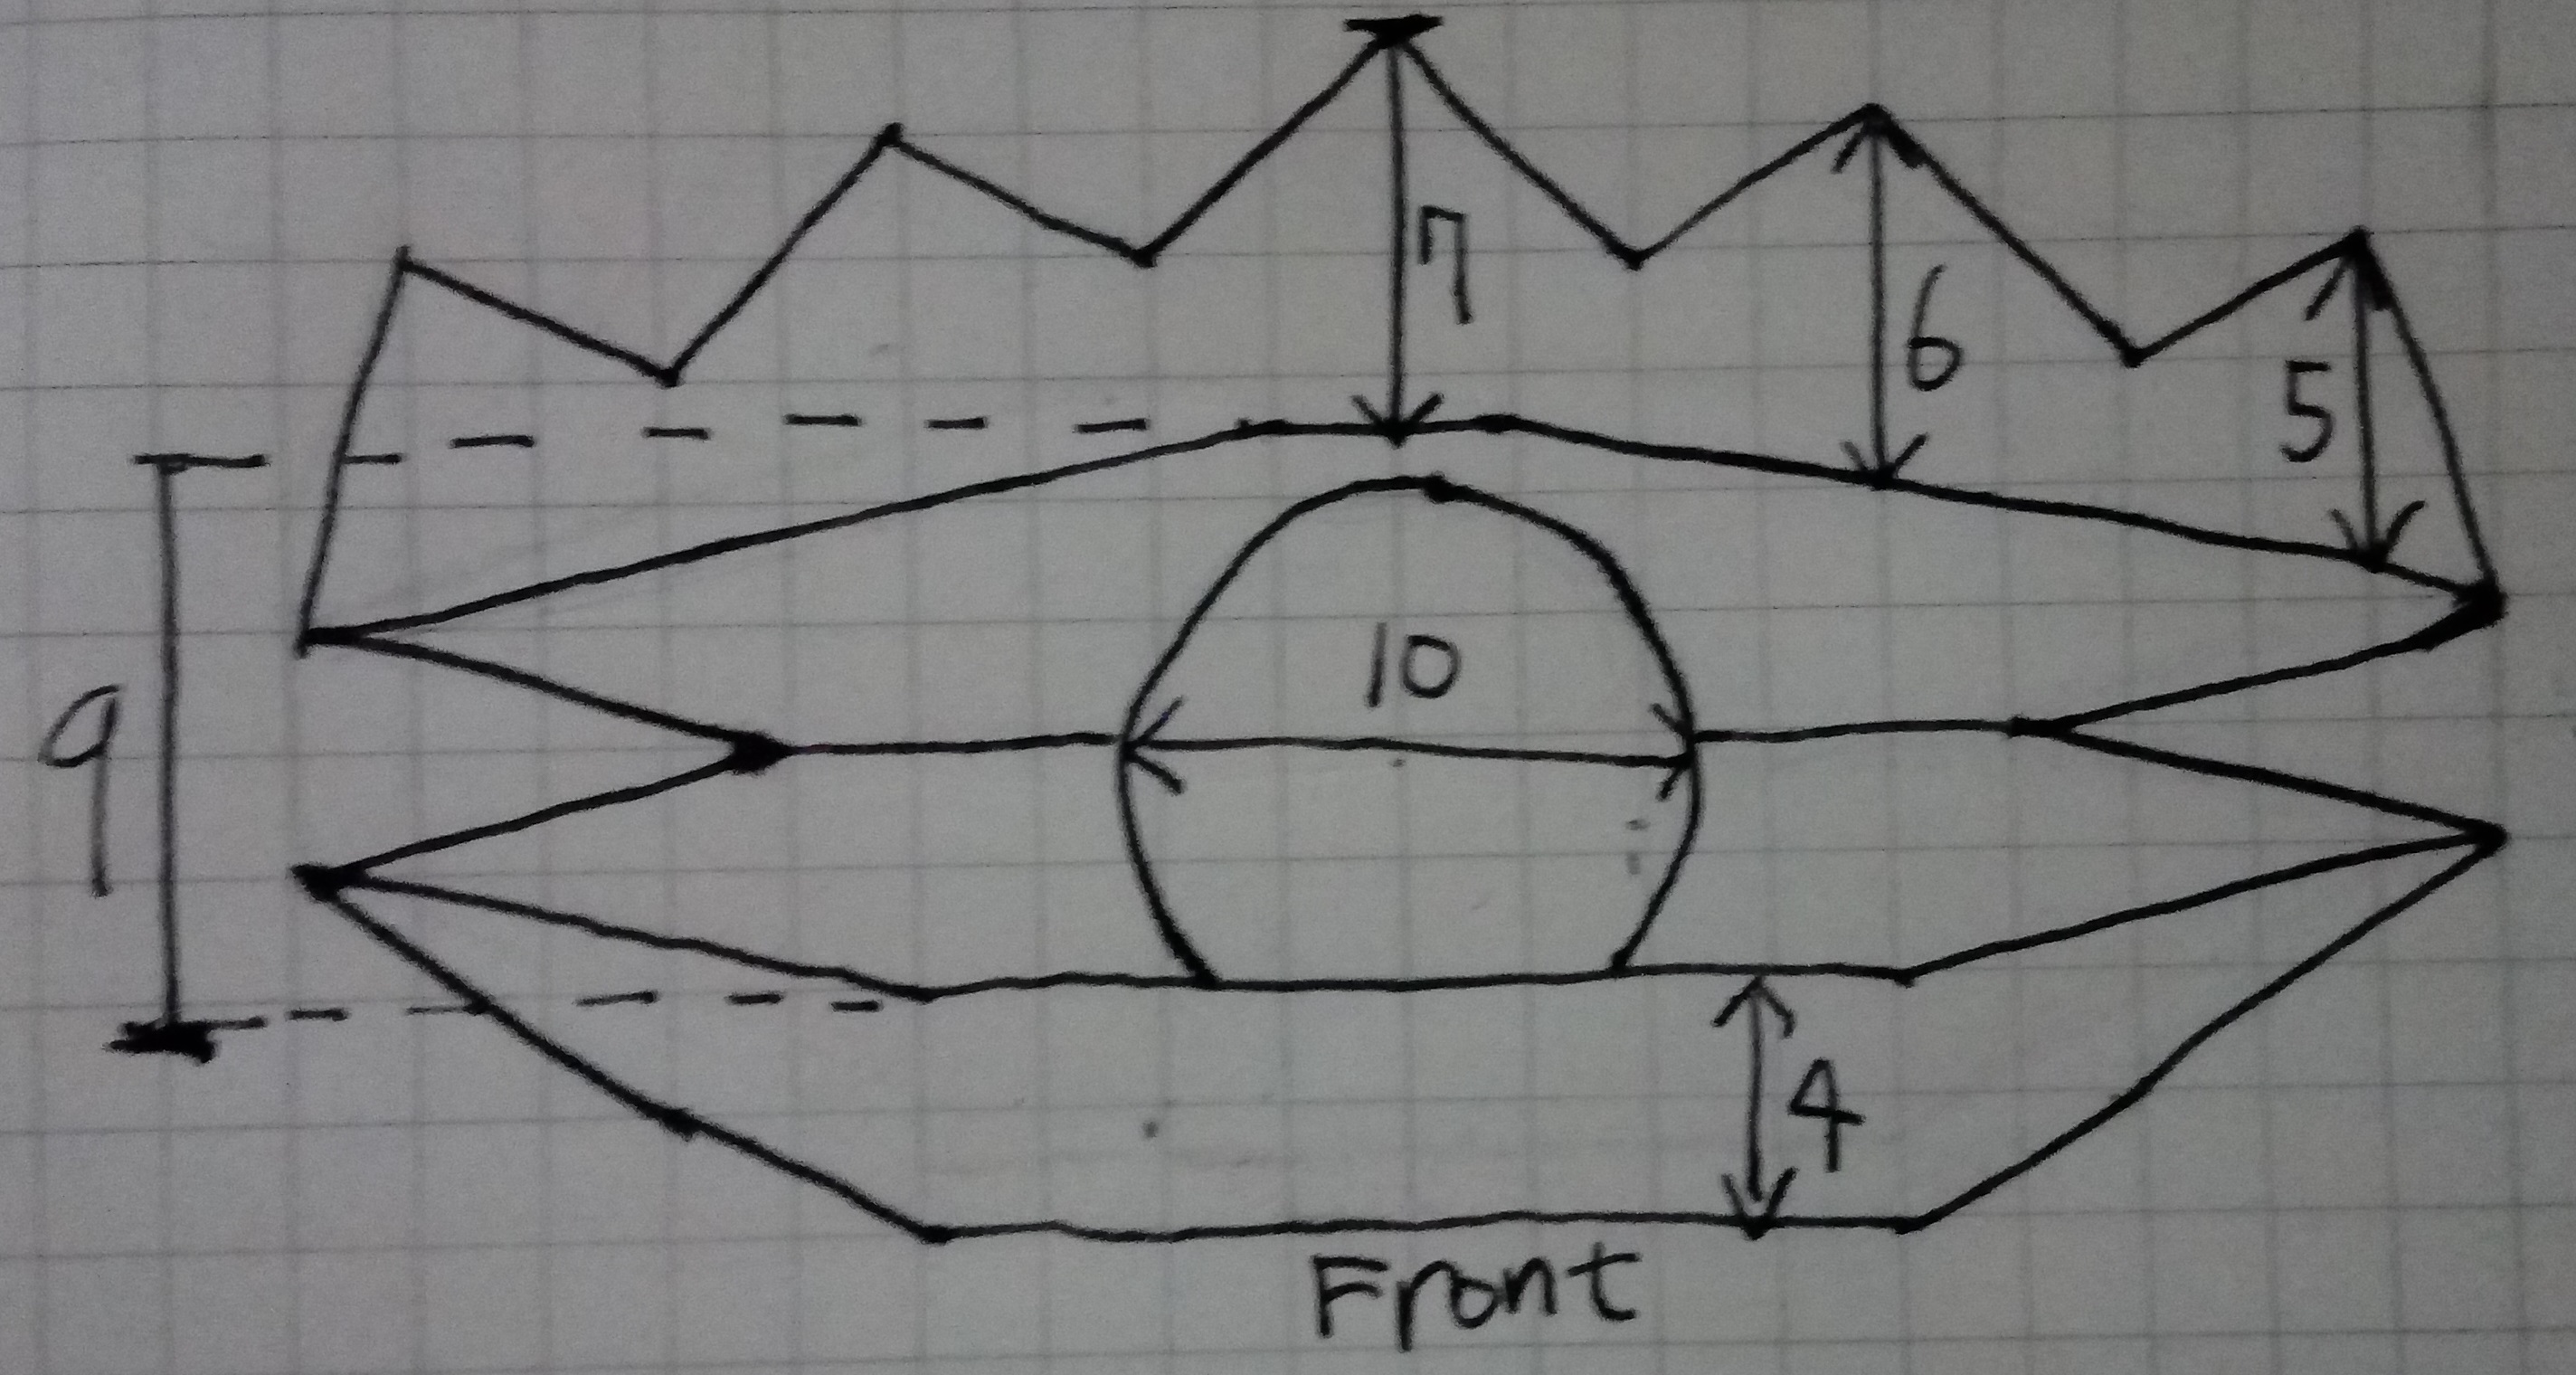 7
6
5
10
9
4
Front